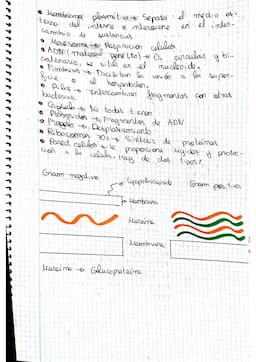 • Membrana plasmática → Separa el medio ex-
terno del interno e interviene en el inter-
cambio de sustancias
• Mesosoma → Respiración celular
• ADN (material genético) → Es circular y bi-
catenario, se sitúa en el nucleoide.
• Fimbrias → Facilitan la unión a la super-
ficie o al hospedador.
• Pilis → Intercambian fragmentos con otras
bacterias.
• Cápsula → No todas tienen
• Plásmidos → Fragmentos de ADN
• Flagelo → Desplazamiento
• Ribosomas 70s → Síntesis de proteínas
• Pared celular → Le proporciona rigidez y protec-
ción a la célula. Hay de dos tipos:
Gram negativo
Gram positiva
→ Membrana
Mureína
Membrana
Mureína → Glucoproteína